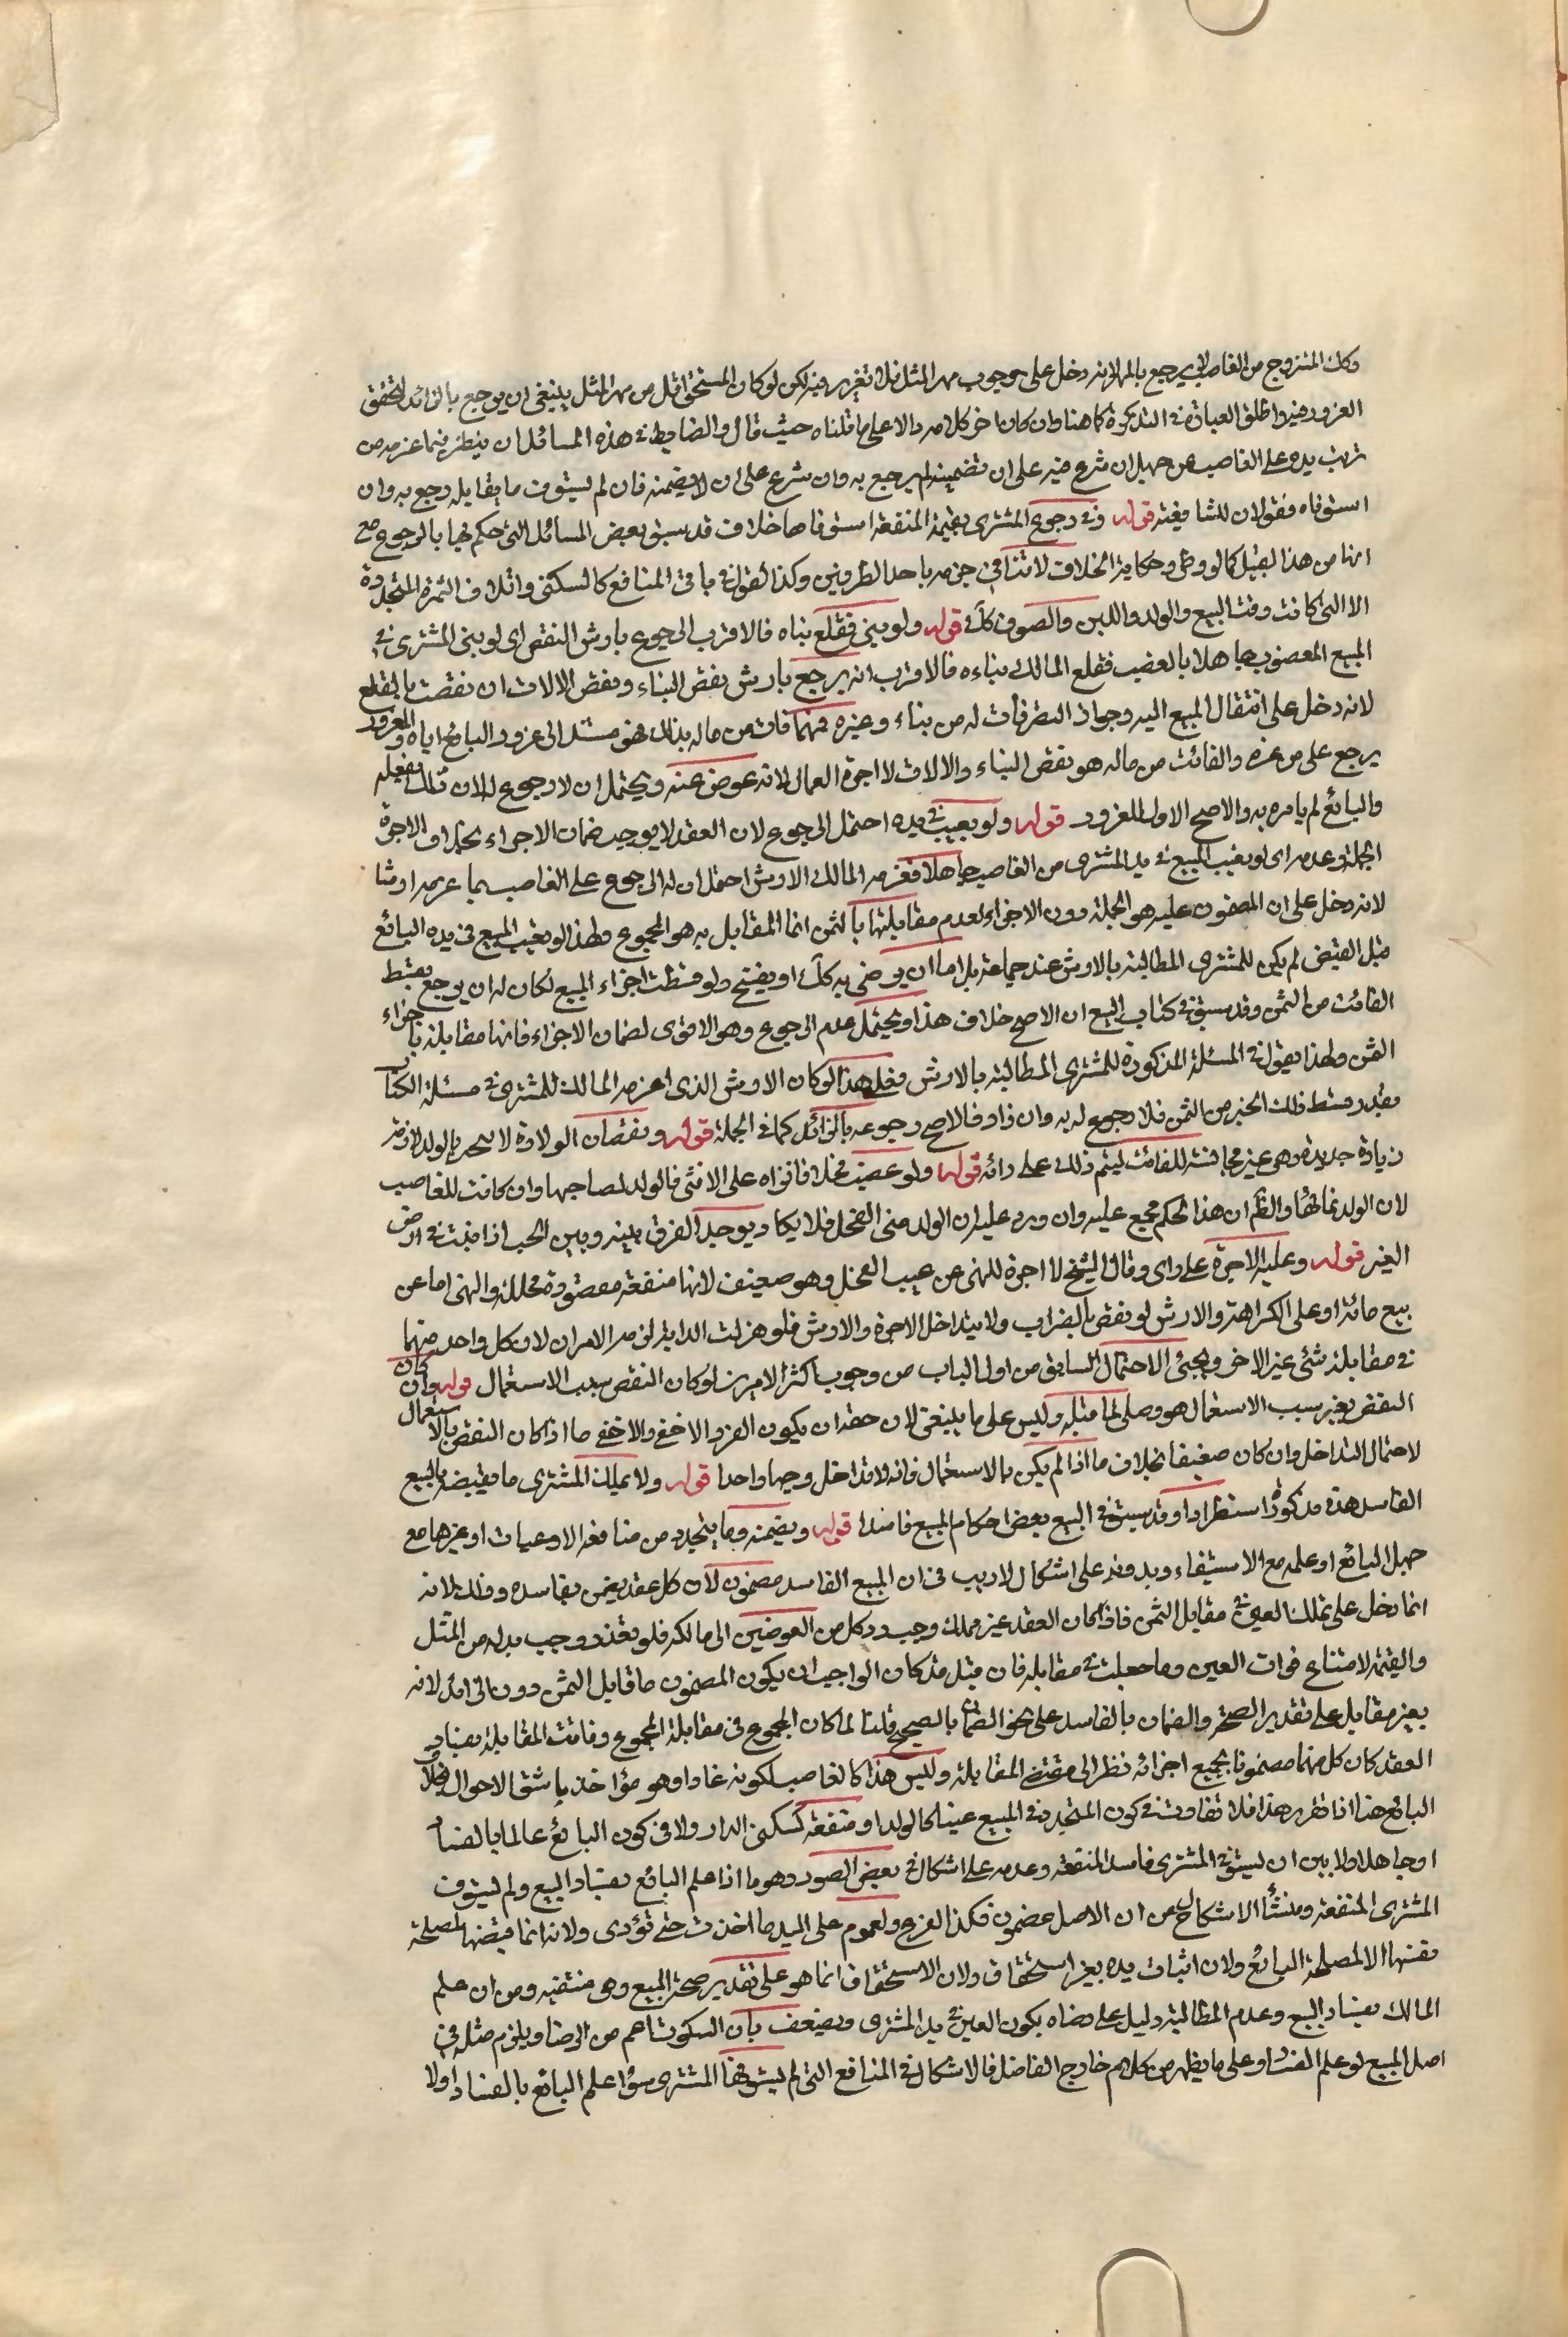 وكك المتزوج من الغاصب لا يرجع بالمهر لانه دخل على وجوب مهر المثل فلا تغرير فيه لكن لو كان المستحق اقل من مهر المثل ينبغي ان يرجع بالزائد لتحقق
الغرور فيه واطلق العبارة في التذكرة كما هنا وان كان اخر كلامه دالا على ما قلناه حيث قال والضابط في هذه المسائل ان ينظر فيما غرمه من
ترتب يده على الغاصب عن جهل ان شرع فيه على ان تضمينه لم يرجع به وان شرع على ان لا يضمنه فان لم يستوف ما يقابله رجع به وان
استوفاه فقولان للشافعية قوله وفي رجوع المشتري بقيمة المنفعة استوفاها خلاف قد سبق بعض المسائل التي حكم فيها بالرجوع مع
انها من هذا القبيل كما لو وطئ وحكاية الخلاف لا تنافي جزمه باحد الطرفين وكذا القول في باقي المنافع كالسكنى واتلاف الثمرة المتجددة
الا التي كانت وقت البيع والولد واللبن والصوف كك قوله ولو بنى فقلع بناه فالاقرب الرجوع بارش النقص اى لو بنى المشتري في
المبيع المغصوب جاهلا بالغصب فقلع المالك بناءه فالاقرب انه يرجع بارش نقض البناء ونقض الالات ان نقصت بالقلع
لانه دخل على انتقال المبيع اليه وجواز التصرفات له من بناء وغيره فمهما فات من ماله بذلك فهو مستند الى غرور البائع اياه والمغرور
يرجع على من غره والفائت من ماله هو نقض البناء والالات لا اجرة العمال لانه عوض عنه ويحتمل ان لا رجوع له لان ذلك بفعله
والبائع لم يامره به والاصح الاول للغرور قوله ولو تعيب في يده احتمل الرجوع لان العقد لا يوجب ضمان الاجزاء بخلاف الاجرة
الجملة وعدمه اى لو تعيب المبيع في يد المشتري من الغاصب جاهلا فغرمه المالك الارش احتمل ان له الرجوع على الغاصب بما غرمه ارشا
لانه دخل على ان المضمون عليه هو الجملة دون الاجزاء لعدم مقابلتها بالثمن انما المقابل به هو المجموع ولهذا لو تعيب المبيع في يده البائع
قبل القبض لم يكن للمشتري المطالبة بالارش عند جماعة بل اما ان يرضى به كك او يفسخ ولو قسطت اجزاء المبيع لكان له ان يرجع بقسط
الفائت من الثمن وقد سبق في كتاب البيع ان الاصح خلاف هذا ويحتمل عدم الرجوع وهو الاقوى لضمان الاجزاء فانها مقابلة باجزاء
الثمن ولهذا نقول في المسئلة المذكورة للمشتري المطالبة بالارش فعلى هذا لو كان الارش الذي اغرمه المالك للمشتري في مسئلة الكتاب
بقدر قسط ذلك الجزء من الثمن فلا رجوع له به وان زاد فالاصح رجوعه بالزائد كما في الجملة قوله ونقصان الولادة لا ينجبر بالولد لانه
زيادة جديدة وهي غير مجانسة للفائت ليتم ذلك على رائه قوله ولو غصب فحلا فانزاه على الانثى فالولد لصاحبها وان كانت للغاصب
لان الولد نماؤها والظ ان هذا الحكم مجمع عليه وان ورد عليه ان الولد من الفحل فلا يكاد يوجد الفرق بينه وبين الحب اذا نبت في ارض
الغير قوله وعليه الاجرة على راى وقال الشيخ لا اجرة للنهي عن عسب الفحل وهو ضعيف لانها منفعة مقصودة محللة والنهي اما عن
بيع مائه او على الكراهة والارش لو نقص بالضراب ولا يتداخل الاجرة والارش فلو هزلت الدابة لزمه الامران لان كل واحد منهما
في مقابلة شئ غير الاخر ويجئ الاحتمال السابق من اول الباب من وجوب اكثر الامرين لو كان النقص بسبب الاستعمال قوله وان كان
النقص بغير سبب الاستعمال هو وصلى لما قبله وليس على ما ينبغي لان حقه ان يكون الفرد الاخفى والاخفى ما اذا كان النقص بالاستعمال
لاحتمال التداخل وان كان ضعيفا بخلاف ما اذا لم يكن بالاستعمال فانه لا تداخل وجها واحدا قوله ولا يملك المشتري ما يقبضه بالبيع
الفاسد هذه مذكورة استطرادا وقد سبق في البيع بعض احكام المبيع فاسدا قوله ويضمنه وما يتجدد من منافعه الاعيان او غيرها مع
جهل البائع او علمه مع الاستيفاء وبدونه على اشكال لا ريب في ان المبيع الفاسد مضمون لان كل عقد يضمن بفاسده وذلك لانه
انما دخل على تملك العين في مقابل الثمن فاذا كان العقد غير مملك وجب رد كل من العوضين الى مالكه فلو تعذر وجب بدله من المثل
والقيمة لامتناع فوات العين وما جعلت في مقابله فان قيل قد كان الواجب ان يكون المضمون ما قابل الثمن دون الزائد لانه
بغير مقابل على تقدير الصحة والضمان بالفاسد على نحو الضمان بالصحيح قلنا لما كان المجموع في مقابلة المجموع وفاتت المقابلة بفساد
العقد كان كل منهما مضمونا بجميع اجزائه نظرا الى مقتضى المقابلة وليس هذا كالغاصب لكونه عاديا وهو مؤاخذ باشق الاحوال بخلاف
البائع هنا اذا تقرر هذا فلا تفاوت في كون المتجدد في المبيع عينا كالولد او منفعة كسكنى الدار ولا في كون البائع عالما بالفساد
او جاهلا ولا بين ان يستوفي المشتري فاسد المنفعة وعدمه على اشكال في بعض الصور وهو ما اذا علم البائع بفساد البيع ولم يستوف
المشتري المنفعة ومنشأ الاشكال من ان الاصل مضمون فكذا الفرع ولعموم على اليد ما اخذت حتى تؤدى ولانه انما قبضها لمصلحة
نفسه لا لمصلحة البائع ولان اثبات يده بغير استحقاق ولان الاستحقاق انما هو على تقدير صحة البيع وهي منتفية ومن ان علم
المالك بفساد البيع وعدم المطالبة دليل على رضاه بكون العين في يد المشتري ويضعف بان السكوت اعم من الرضا ويلزم مثله في
اصل المبيع لو علم الفساد وعلى ما يظهر من كلام خارج الفاضل فالاشكال في المنافع التي لم يستوفها المشتري سواء علم البائع بالفساد اولا